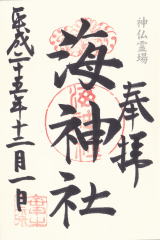 神仏霊場
奉拝
海神社
平成二十五年十二月一日